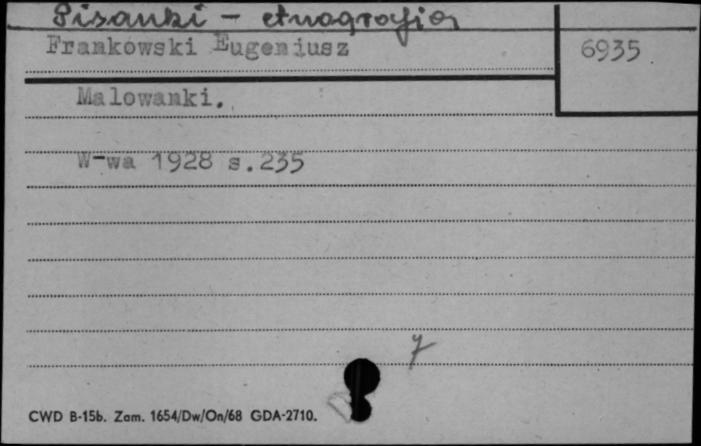 Pisanki - etnografia
Frankowski Eugeniusz 6935
Malowanki.
W-wa 1928 s.235
7
CWD B-15b. Zam. 1654/Dw/On/68 GDA-2710.